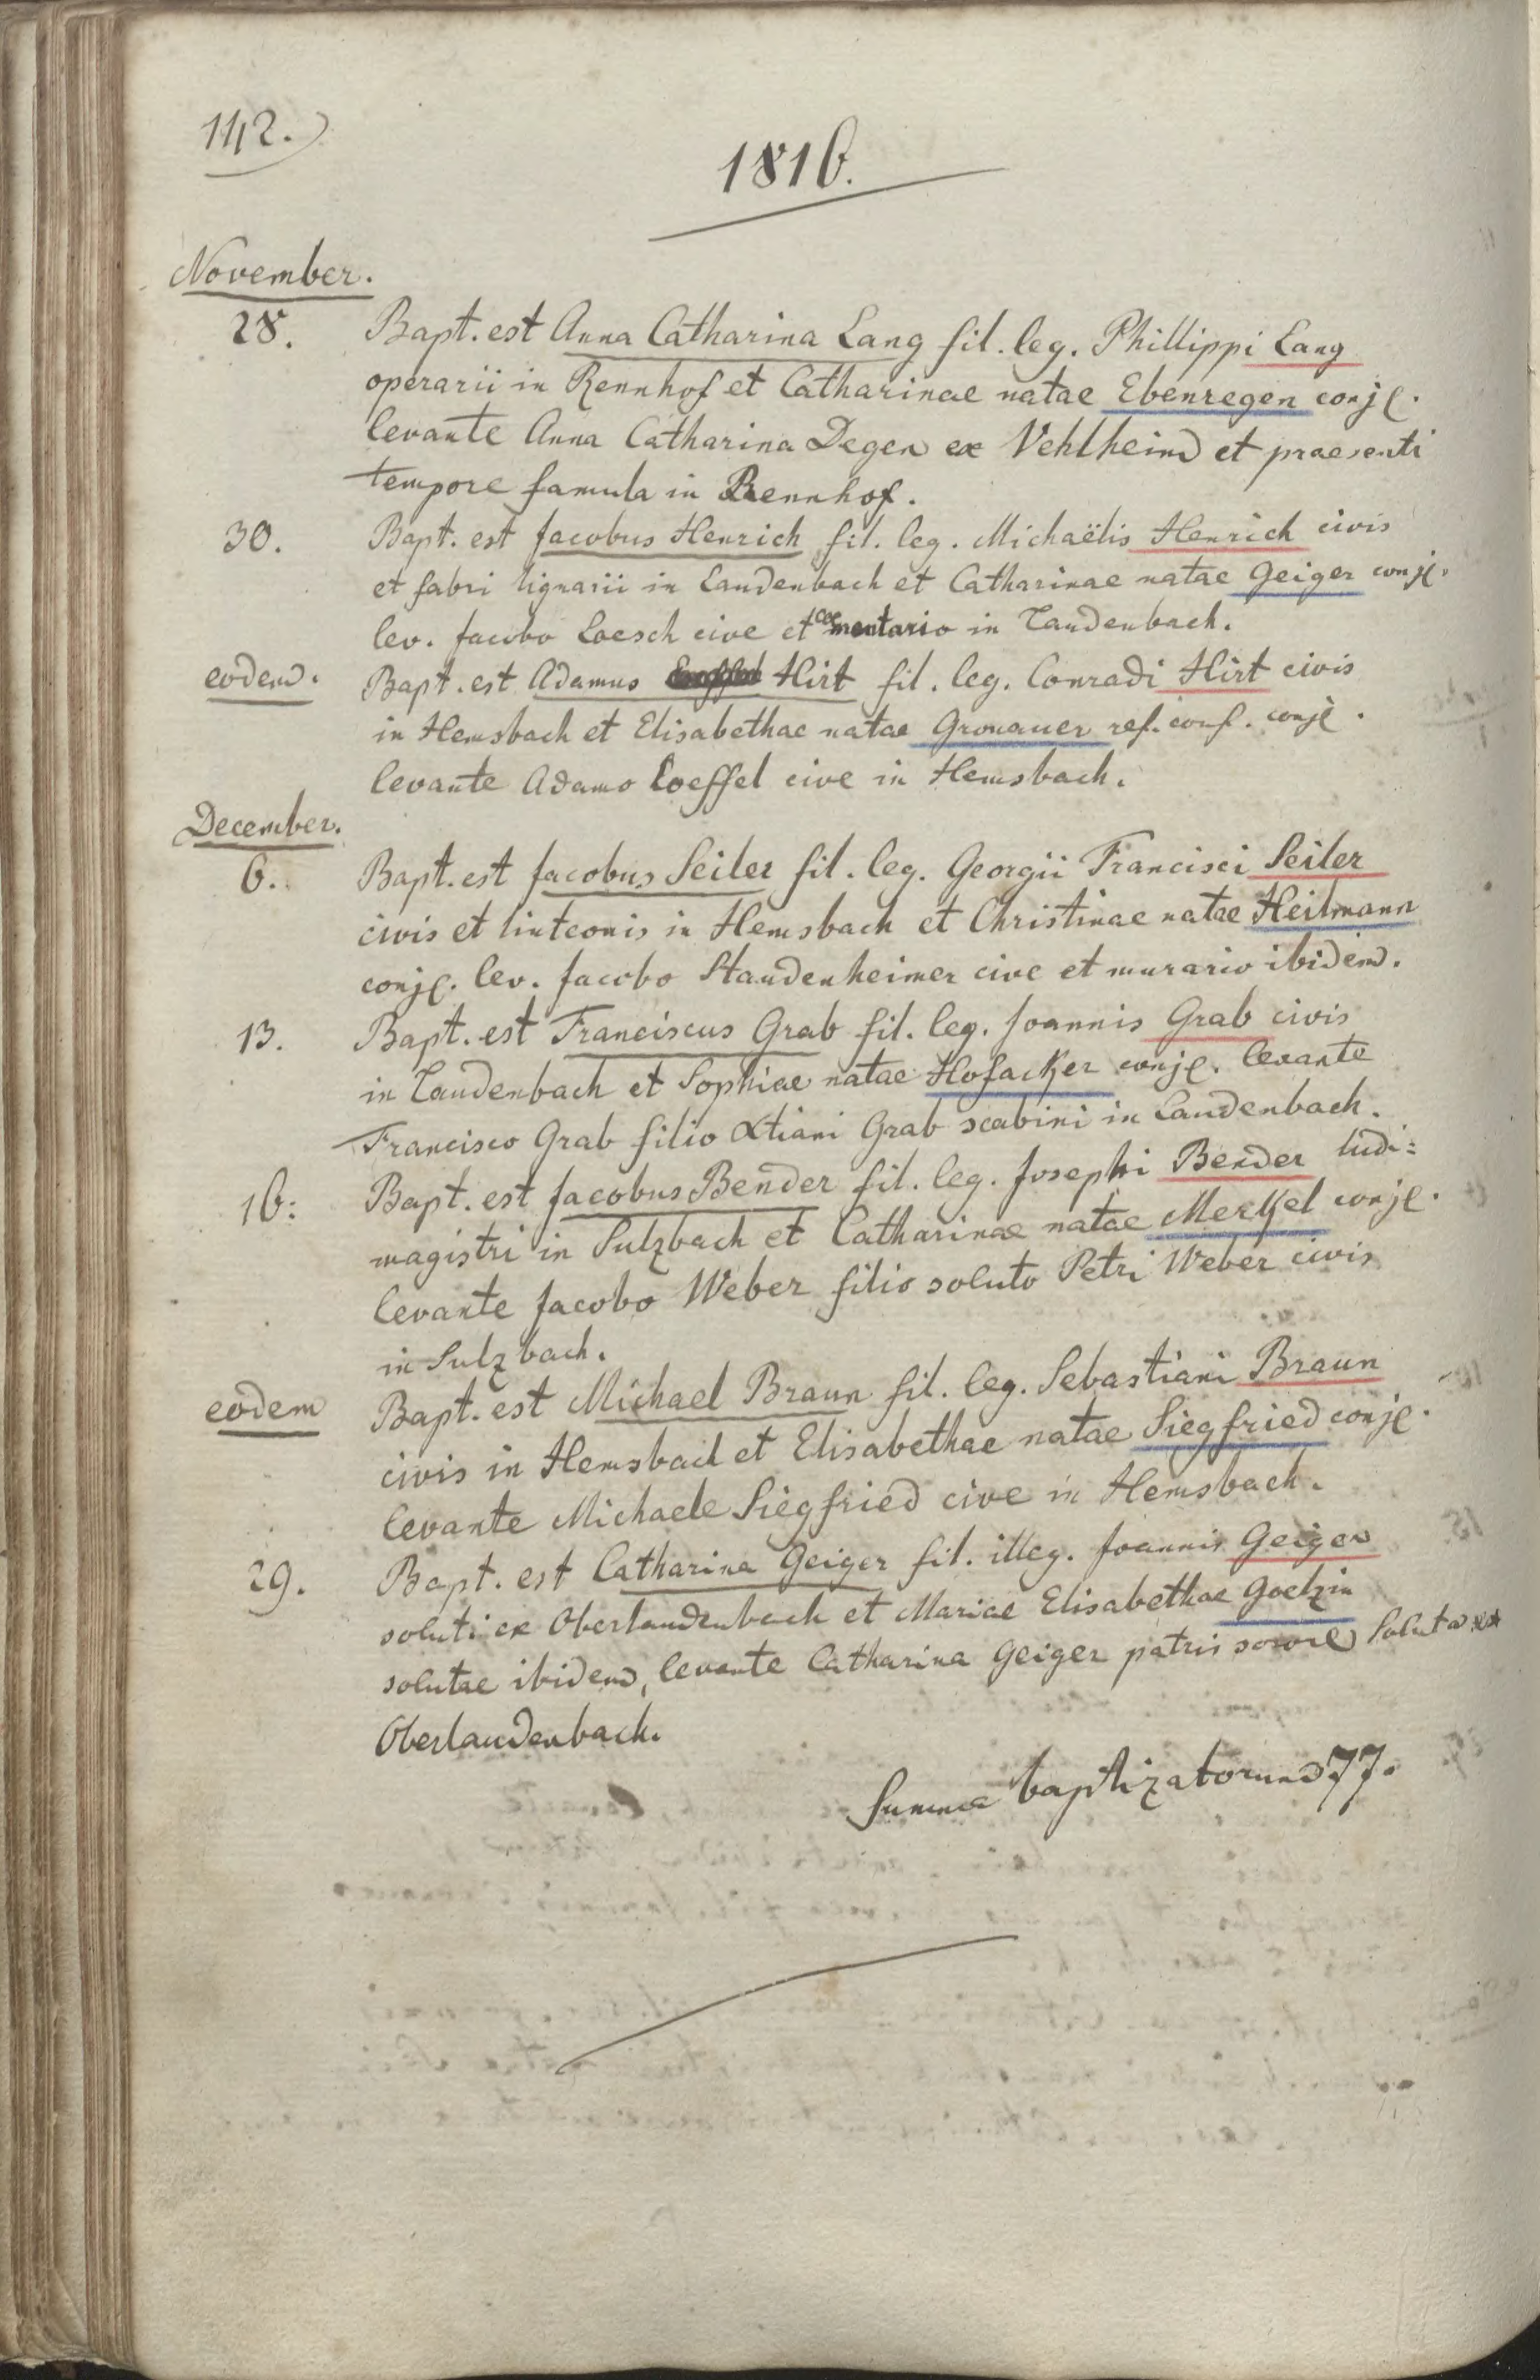 142.
1816.
November.
28. Bapt. est Anna Catharina Lang fil. leg. Phillippi Lang
operarii in Rennhof et Catharinae natae Ebenregen conj.
levante Anna Catharina Degen ex Vehlheim et praesenti
tempore famula in Rennhof.
30. Bapt. est Jacobus Henrich fil. leg. Michaëlis Henrich civis
et fabri lignarii in Laudenbach et Catharinae natae Geiger conj.
lev. Jacobo Loesch cive et coementario in Laudenbach.
eodem. Bapt. est Adamus Hirt fil. leg. Conradi Hirt civis
in Hemsbach et Elisabethae natae Gronauer ref. conf. conj.
levante Adamo Loeffel cive in Hemsbach.
December.
6. Bapt. est Jacobus Seiler fil. leg. Georgii Francisci Seiler
civis et linteonis in Hemsbach et Christinae natae Heilmann
conj. lev. Jacobo Staudenheimer cive et murario ibidem.
13. Bapt. est Franciscus Grab fil. leg. Joannis Grab civis
in Laudenbach et Sophiae natae Hofacker conj. levante
Francisco Grab filio Xtiani Grab scabini in Laudenbach.
16: Bapt. est Jacobus Bender fil. leg. Josephi Bender ludi=
magistri in Sulzbach et Catharinae natae Merkel conj.
levante Jacobo Weber filio soluto Petri Weber civis
in Sulzbach.
eodem Bapt. est Michael Braun fil. leg. Sebastiani Braun
civis in Hemsbach et Elisabethae natae Siegfried conj.
levante Michaele Siegfried cive in Hemsbach.
29. Bapt. est Catharina Geiger fil. illeg. Joannis Geiger
soluti ex Oberlaudenbach et Mariae Elisabethae Goetzin
solutae ibidem, levante Catharina Geiger patris sorore soluta ex
Oberlaudenbach.
Summa baptizatorum 77.